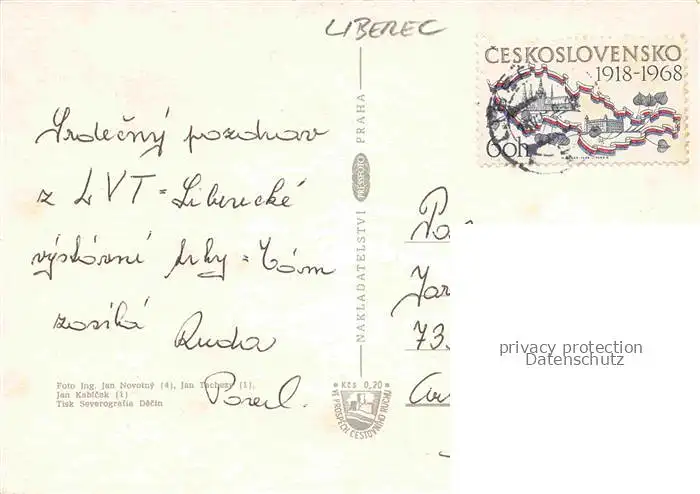 LIBEREC
ČESKOSLOVENSKO
1918-1968
60h
Srdečný pozdrav
z LVT = Liberecké
výstavní trhy = Vám
zasílá Ruda
NAKLADATELSTVÍ PRESSFOTO PRAHA
Jar
73
privacy protection
Datenschutz
Foto Ing. Jan Novotný (4), Jan Tachezy (1),
Jan Kabíček (1)
Tisk Severografia Děčín
Kčs 0,20
VE PROSPĚCH CESTOVNÍHO RUCHU